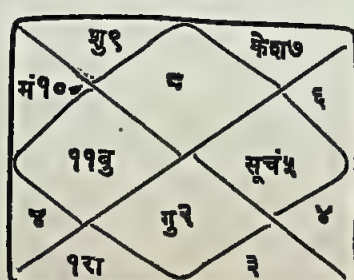 शु९ केश७
मं१० ८ ६
११बु सूचं५
४ गु२ ४
१रा ३